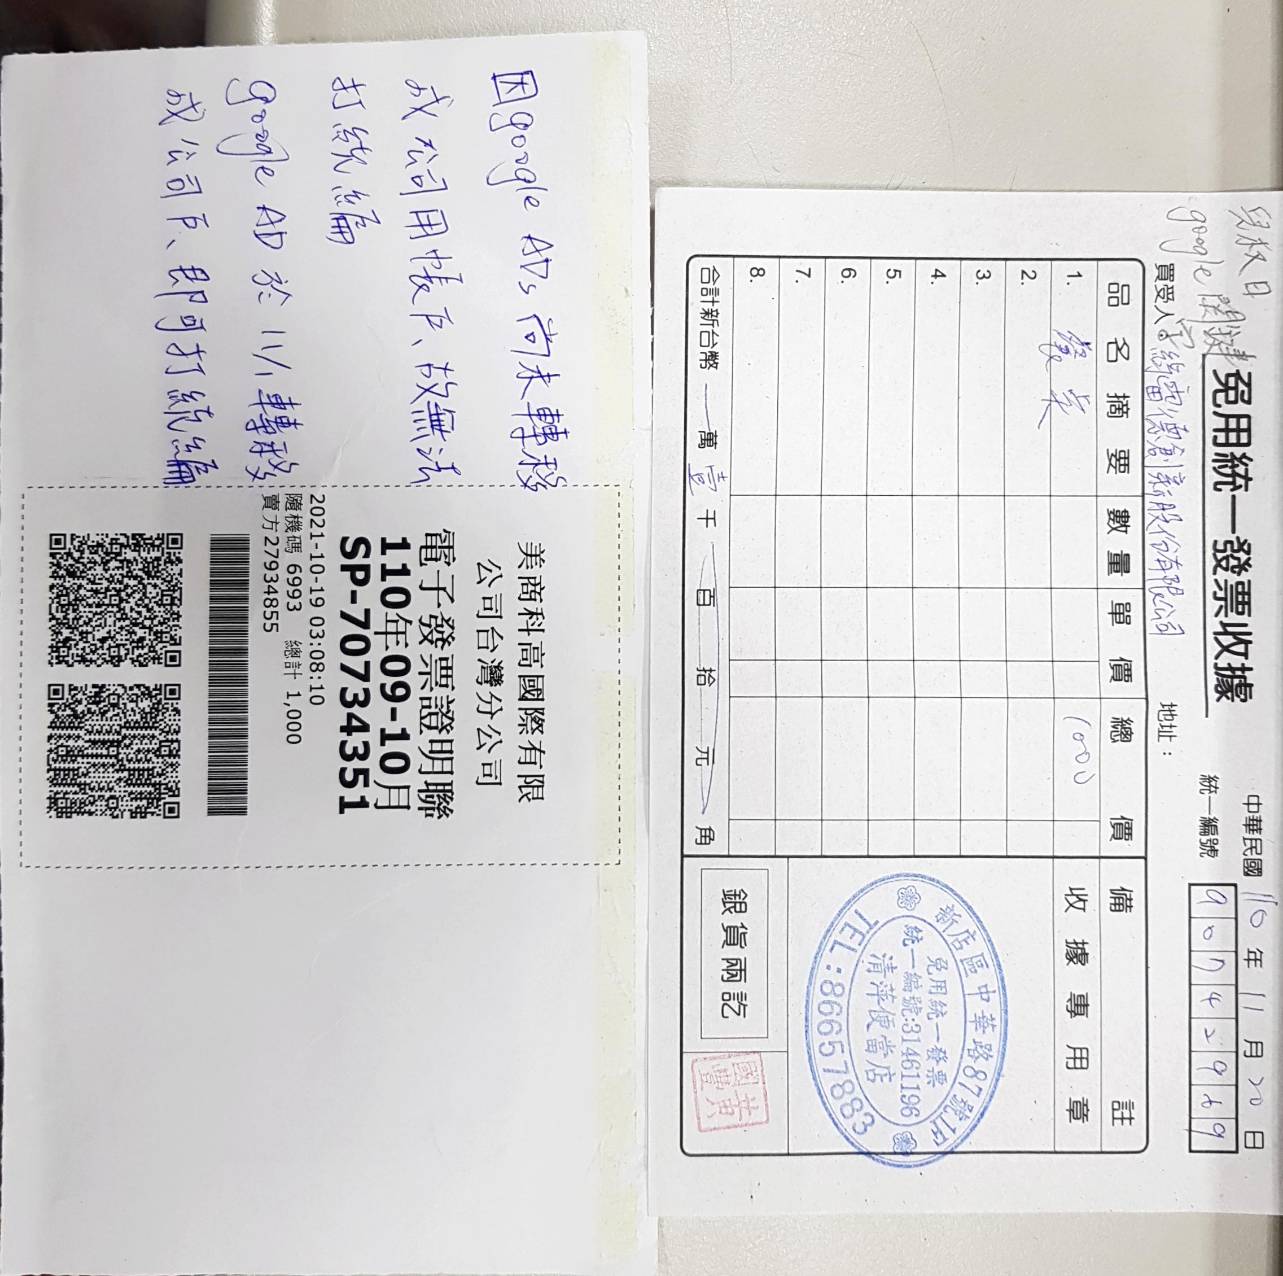 因google ADs 尚未轉移
成公司用帳戶、故無法
打統編
google AD 於 11/1 轉移
成公司戶、即可打統編
美商科高國際有限
公司台灣分公司
電子發票證明聯
110年09-10月
SP-70734351
2021-10-19 03:08:10
隨機碼 6993 總計 1,000
賣方27934855
google 關鍵
免用統一發票收據
中華民國 110 年 11 月 20 日
統一編號 90742969
買受人：
創新股份有限公司 地址：
品名摘要 數量 單價 總價 備註
1. 餐桌 1000 收據專用章
2.
3.
4.
5.
6.
7.
8.
合計新台幣 萬 壹 千 百 拾 元 角
新店區中華路87號1F
免用統一發票
統一編號:31461196
清萍便當店
TEL:86657883
銀貨兩訖